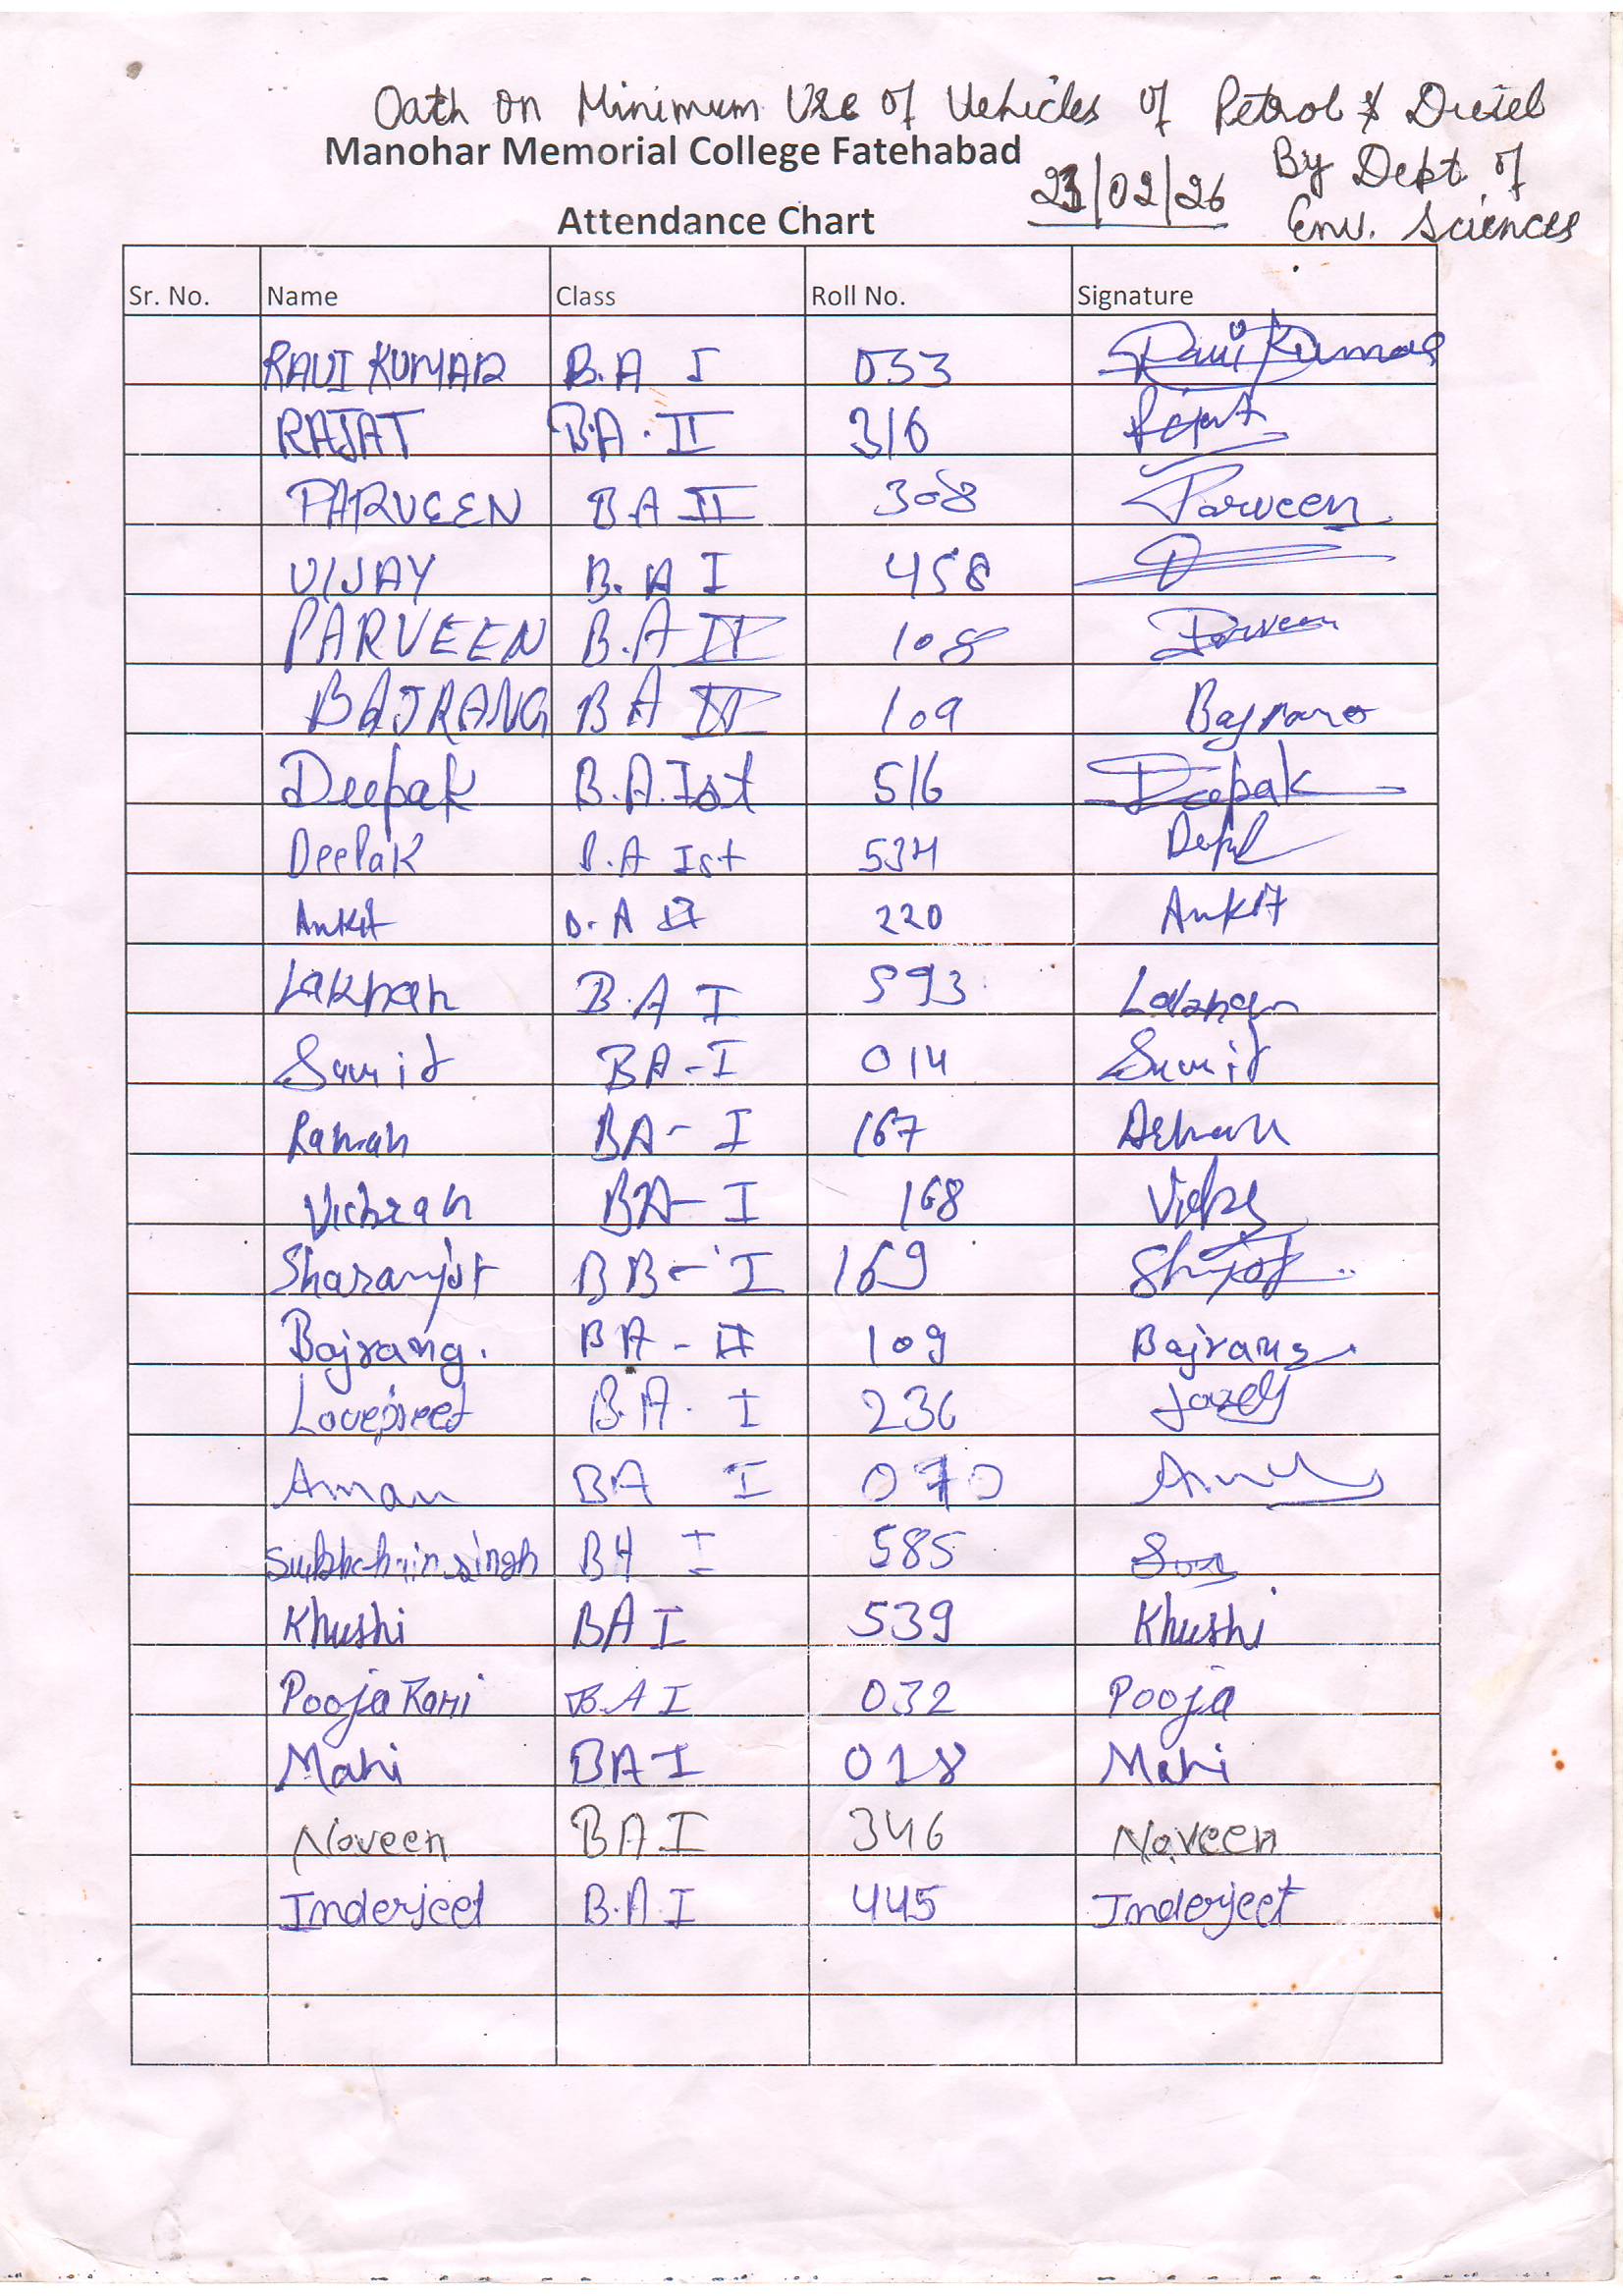 Oath on Minimum Use of Vehicles of Petrol & Diesel
Manohar Memorial College Fatehabad
By Dept. of
23/02/26
Env. Sciences
Attendance Chart
Sr. No. Name Class Roll No. Signature
RAVI KUMAR B.A I 053 Ravi Kumar
RAJAT B.A. II 316 Rajat
PARVEEN BA II 308 Parveen
VIJAY B. A I 458
PARVEEN B.A II 108 Parveen
BAJRANG BA II 109 Bajrang
Deepak B.A. Ist 516 Deepak
DeePak B.A Ist 534
Ankit B.A II 220 Ankit
Lakhan B.A I 593 Lakhan
Sumit BA-I 014 Sumit
Raman BA-I 167
BA-I 168
Sharanjot BB-I 169
Bajrang. BA-II 109 Bajrang
Lovepreet B.A. I 236
Aman BA I 070
Sukhchain singh BA I 585
Khushi BA I 539 Khushi
Pooja Rani B.A I 032 Pooja
Mahi BA I 018 Mahi
Naveen BA I 346 Naveen
Inderjeet B.A I 445 Inderjeet